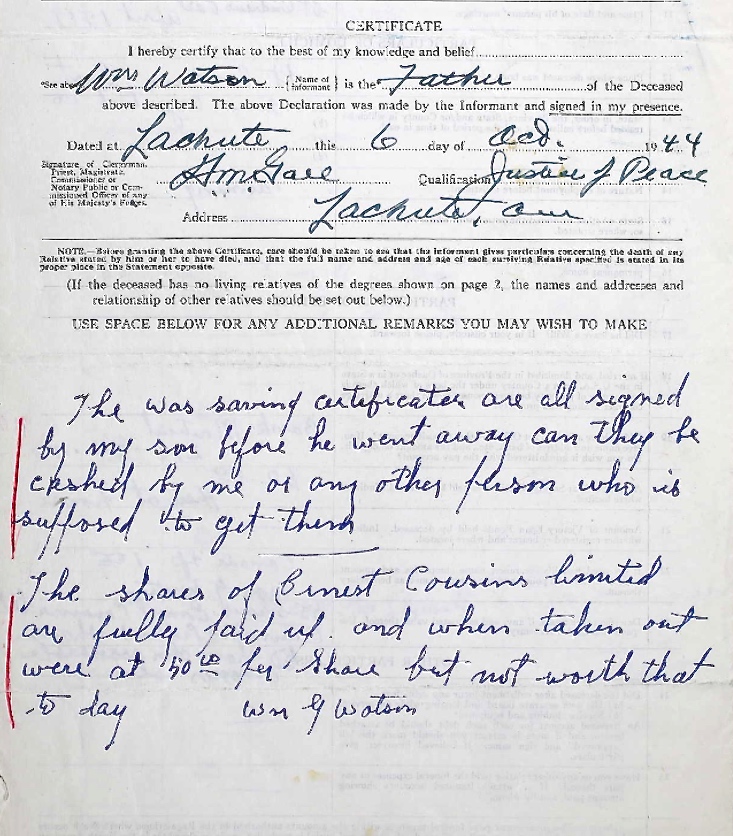 CERTIFICATE
I hereby certify that to the best of my knowledge and belief
*See above Wm Watson {Name of Informant} is the Father of the Deceased
above described. The above Declaration was made by the Informant and signed in my presence.
Dated at Lachute, this 6 day of Oct. 1944
Signature of Clergyman,
Priest, Magistrate,
Commissioner or
Notary Public or Com-
missioned Officer of any
of His Majesty's Forces.
Qualification Justice of Peace
Address Lachute, Que
NOTE.—Before granting the above Certificate, care should be taken to see that the informant gives particulars concerning the death of any
Relative stated by him or her to have died, and that the full name and address and age of each surviving Relative specified is stated in its
proper place in the Statement opposite.
(If the deceased has no living relatives of the degrees shown on page 2, the names and addresses and
relationship of other relatives should be set out below.)
USE SPACE BELOW FOR ANY ADDITIONAL REMARKS YOU MAY WISH TO MAKE
The was saving certificates are all signed
by my son before he went away can they be
cashed by me or any other person who is
supposed to get them
The shares of Ernest Cousins limited
are fully paid up and when taken out
were at 50 00 per Share but not worth that
to day Wm G Watson